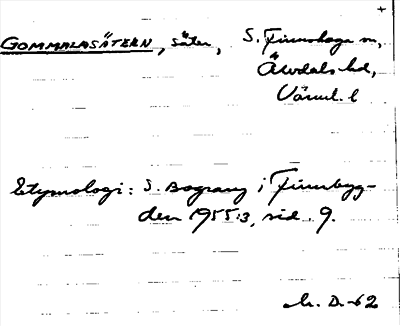 +
GOMMALASÄTERN, säter, S. Finnskoga sn,
Älvdals hd,
Värml. l
Etymologi: S. Bograng i Finnbyg-
den 1955:3, sid. 9.
M. D. -62